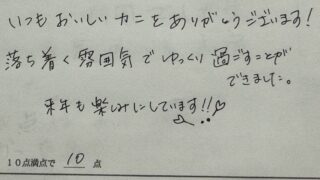 いつもおいしいカニをありがとうございます!
落ち着く雰囲気でゆっくり過ごすことが
できました。
来年も楽しみにしています!!♡
10点満点で 10 点